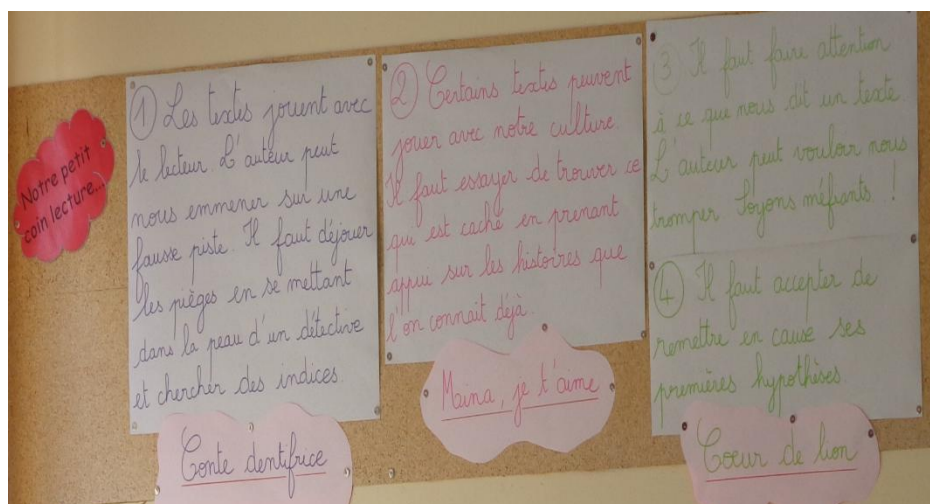 Notre petit
coin lecture...
① Les textes jouent avec
le lecteur. L'auteur peut
nous emmener sur une
fausse piste. Il faut déjouer
les pièges en se mettant
dans la peau d'un détective
et chercher des indices.
Conte dentifrice
② Certains textes peuvent
jouer avec notre culture.
Il faut essayer de trouver ce
qui est caché en prenant
appui sur les histoires que
l'on connait déjà.
Maïna, je t'aime
③ Il faut faire attention
à ce que nous dit un texte.
L'auteur peut vouloir nous
tromper. Soyons méfiants !
④ Il faut accepter de
remettre en cause ses
premières hypothèses.
Coeur de lion